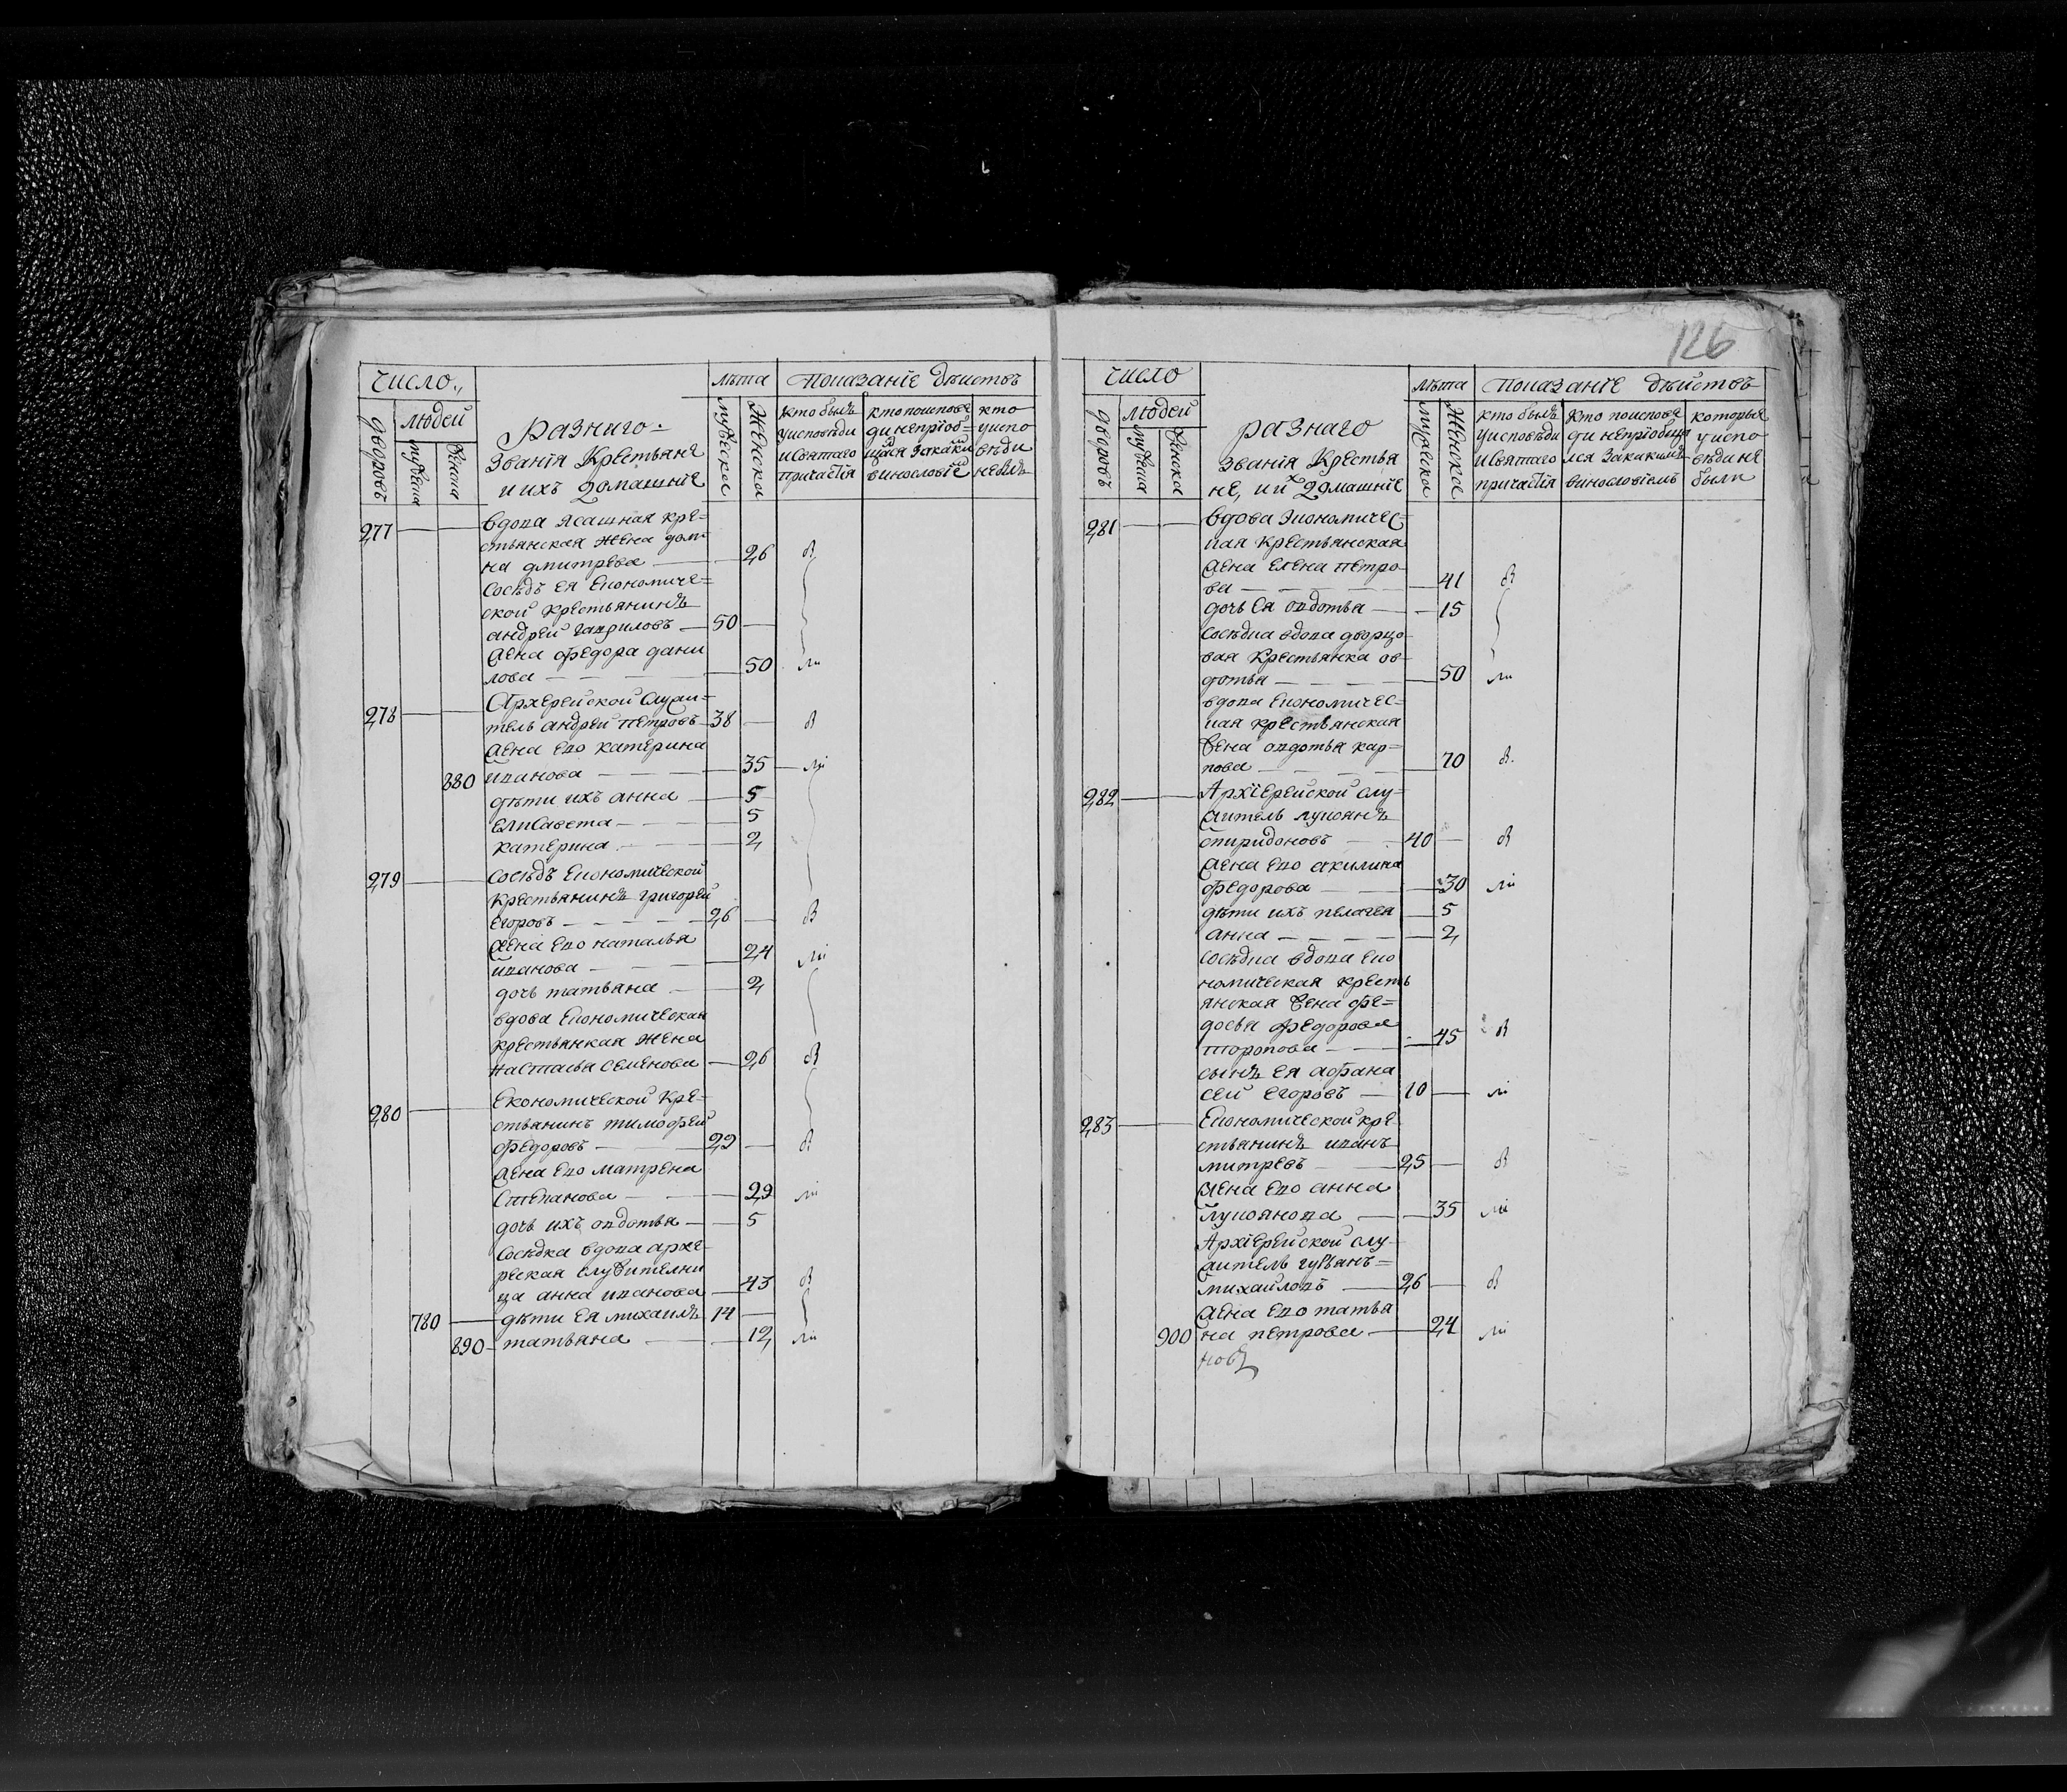 126
число
людей
дворовъ
мужеска
женска
разнаго
званія крестьяне
и ихъ домашніе
лѣта
мужеска
женска
показаніе дѣйствъ
кто былъ
у исповѣди
и святаго
причастія
кто исповѣ
кто
у испо
вѣди
не былъ
277 вдова ясашная кре=
стьянская жена дом
на дмитрева 26 В
сосѣдъ ея економиче=
ской крестьянинъ
андрей гавриловъ 50
жена федора дани
лова 50 ли
278 Архерейской служи=
тель андрей петровъ 38 В
жена ево катерина
880 иванова 35 ли
дѣти ихъ анна 5
елисавета 5
катерина 2
279 сосѣдъ економической
крестьянинъ григорей
егоровъ 26 В
жена ево наталья
иванова 24 ли
дочь татьяна 2
вдова економическая
крестьянкая жена
настасья семенова 26 В
280 економической кре=
стьянинъ тимофей
федоровъ 22 В
жена ево матрена
степанова 29 ли
дочь ихъ овдотья 5
сосѣдка вдова архе
рейская служителни
ца анна иванова 43 В
780 дѣти ея михаилъ 14
890 татьяна 12 ли
число
людей
дворовъ
мужеска
женска
разнаго
званія крестья
не, и их домашніе
лѣта
мужеска
женска
показаніе дѣйствъ
кто былъ
у исповѣди
и святаго
причастія
кто по исповѣ
ди не пріобща
лся за какимъ
винословіемъ
которые
у испо
вѣди не
были
281 вдова экономичес=
кая крестьянская
жена елена петро
ва 41 В
дочь ея овдотья 15
сосѣдка вдова дворцо
вая крестьянка ов
дотья 50 ли
вдова економичес=
кая крестьянская
жена овдотья кар=
пова 70 В
282 Архіерейской слу=
житель лукоянъ
спиридоновъ 40 В
жена ево акилина
федорова 30 ли
дѣти ихъ пелагея 5
анна 2
сосѣдка вдова еко
номическая кресть
янская жена фе=
досья федорова
торопова 45 В
сынъ ея афана
сей егоровъ 10 ли
283 економической кре
стьянинъ иванъ
митревъ 25 В
жена ево анна
лукоянова 35 ли
Архіерейской слу
житель
михайловъ 26 В
жена ево татья
900 на петрова 24 ли